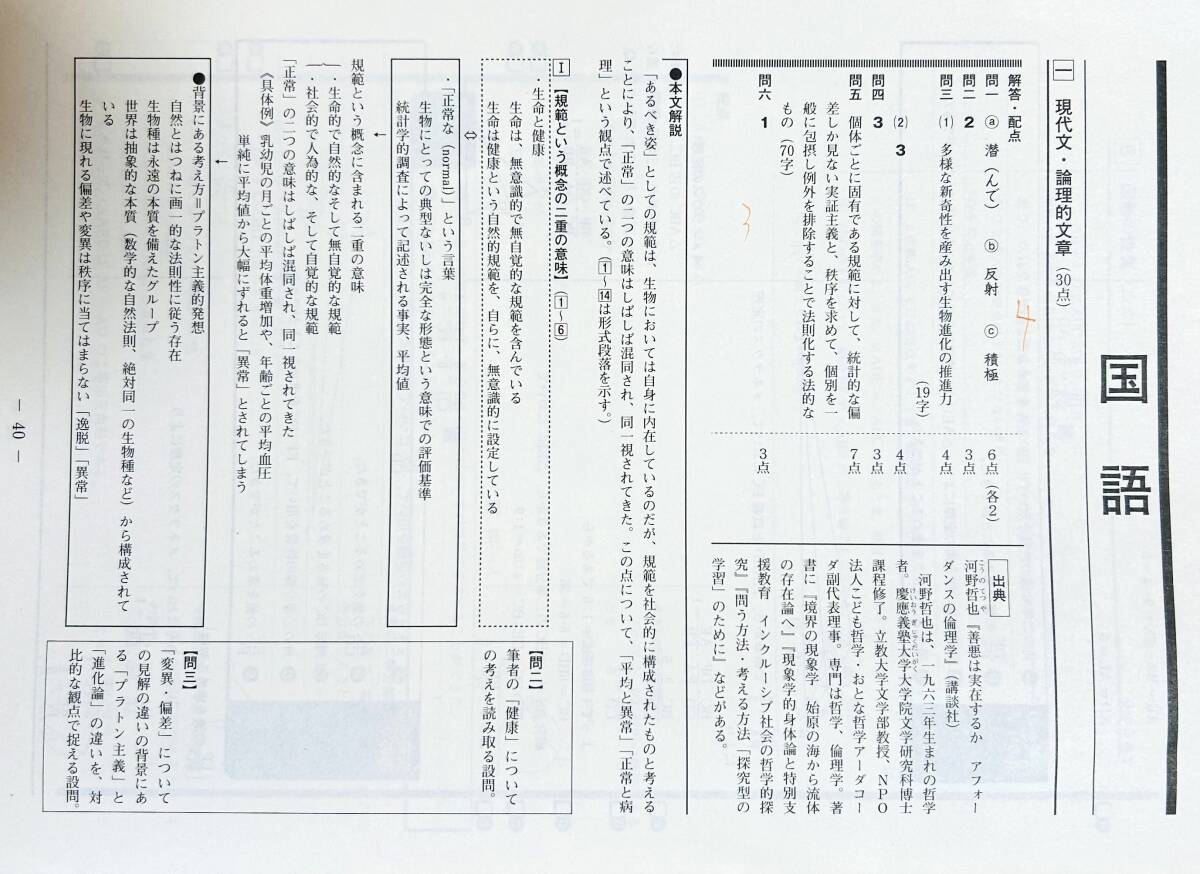 国語
一 現代文・論理的文章（30点）
解答・配点
問一 ⓐ 潜（んで） ⓑ 反射 ⓒ 積極 6点（各2）
問二 2 3点
問三 (1) 多様な新奇性を産み出す生物進化の推進力
（19字） 4点
(2) 3 4点
問四 3 3点
問五 個体ごとに固有である規範に対して、統計的な偏
差しか見ない実証主義と、秩序を求めて、個別を一
般に包摂し例外を排除することで法則化する法的な
もの（70字） 7点
問六 1 3点
4
3
出典
河野哲也『善悪は実在するか アフォー
こうのてつや
ダンスの倫理学』（講談社）
河野哲也は、一九六三年生まれの哲学
者。慶應義塾大学大学院文学研究科博士
けいおうぎじゅくだいがく
課程修了。立教大学文学部教授、NPO
法人こども哲学・おとな哲学アーダコー
ダ副代表理事。専門は哲学、倫理学。著
書に『境界の現象学 始原の海から流体
の存在論へ』『現象学的身体論と特別支
援教育 インクルーシブ社会の哲学的探
究』『問う方法・考える方法「探究型の
学習」のために』などがある。
●本文解説
「あるべき姿」としての規範は、生物においては自身に内在しているのだが、規範を社会的に構成されたものと考える
ことにより、「正常」の二つの意味はしばしば混同され、同一視されてきた。この点について、「平均と異常」「正常と病
理」という観点で述べている。（1～14は形式段落を示す。）
Ⅰ【規範という概念の二重の意味】（1～6）
・生命と健康
生命は、無意識的で無自覚的な規範を含んでいる
生命は健康という自然的規範を、自らに、無意識的に設定している
⇔
・「正常な（normal）」という言葉
生物にとっての典型ないしは完全な形態という意味での評価基準
統計学的調査によって記述される事実、平均値
↓
規範という概念に含まれる二重の意味
・生命的で自然的なそして無自覚的な規範
・社会的で人為的な、そして自覚的な規範
「正常」の二つの意味はしばしば混同され、同一視されてきた
《具体例》乳幼児の月ごとの平均体重増加や、年齢ごとの平均血圧
単純に平均値から大幅にずれると「異常」とされてしまう
↓
●背景にある考え方＝プラトン主義的発想
自然とはつねに画一的な法則性に従う存在
生物種は永遠の本質を備えたグループ
世界は抽象的な本質（数学的な自然法則、絶対同一の生物種など）から構成されて
いる
生物に現れる偏差や変異は秩序に当てはまらない「逸脱」「異常」
【問二】
筆者の「健康」について
の考えを読み取る設問。
【問三】
「変異・偏差」について
の見解の違いの背景にあ
る「プラトン主義」と
「進化論」の違いを、対
比的な観点で捉える設問。
― 40 ―